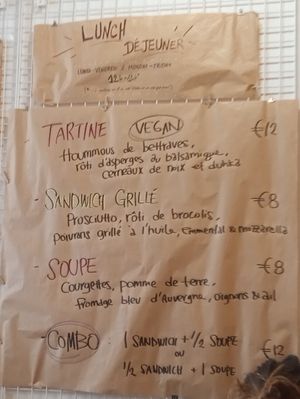 LUNCH
DÉJEUNER
LUNDI-VENDREDI & MONDAY-FRIDAY
TARTINE VEGAN €12
Hoummous de bettraves,
rôti d'asperges au balsamique,
cerneaux de noix et dukka
- SANDWICH GRILLÉ €8
Prosciutto, rôti de brocolis,
poivrons grillé à l'huile, emmental & mozzarella
- SOUPE €8
Courgettes, pomme de terre,
fromage bleu d'Auvergne, oignons & ail
- COMBO: 1 SANDWICH + 1/2 SOUPE €12
OU
1/2 SANDWICH + 1 SOUPE